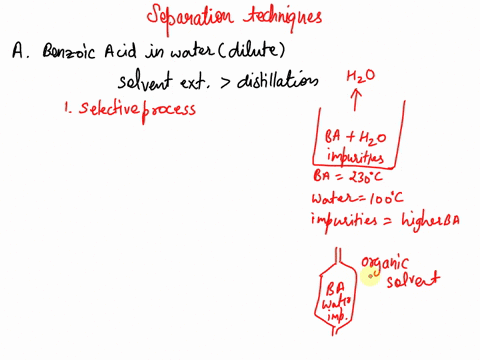 Separation techniques
A. Benzoic Acid in water (dilute)
solvent ext. > distillation
1. Selective process
H₂O
BA + H₂O
impurities
BA = 230°C
Water = 100°C
impurities = higher BA
organic
solvent
BA
water
imp.